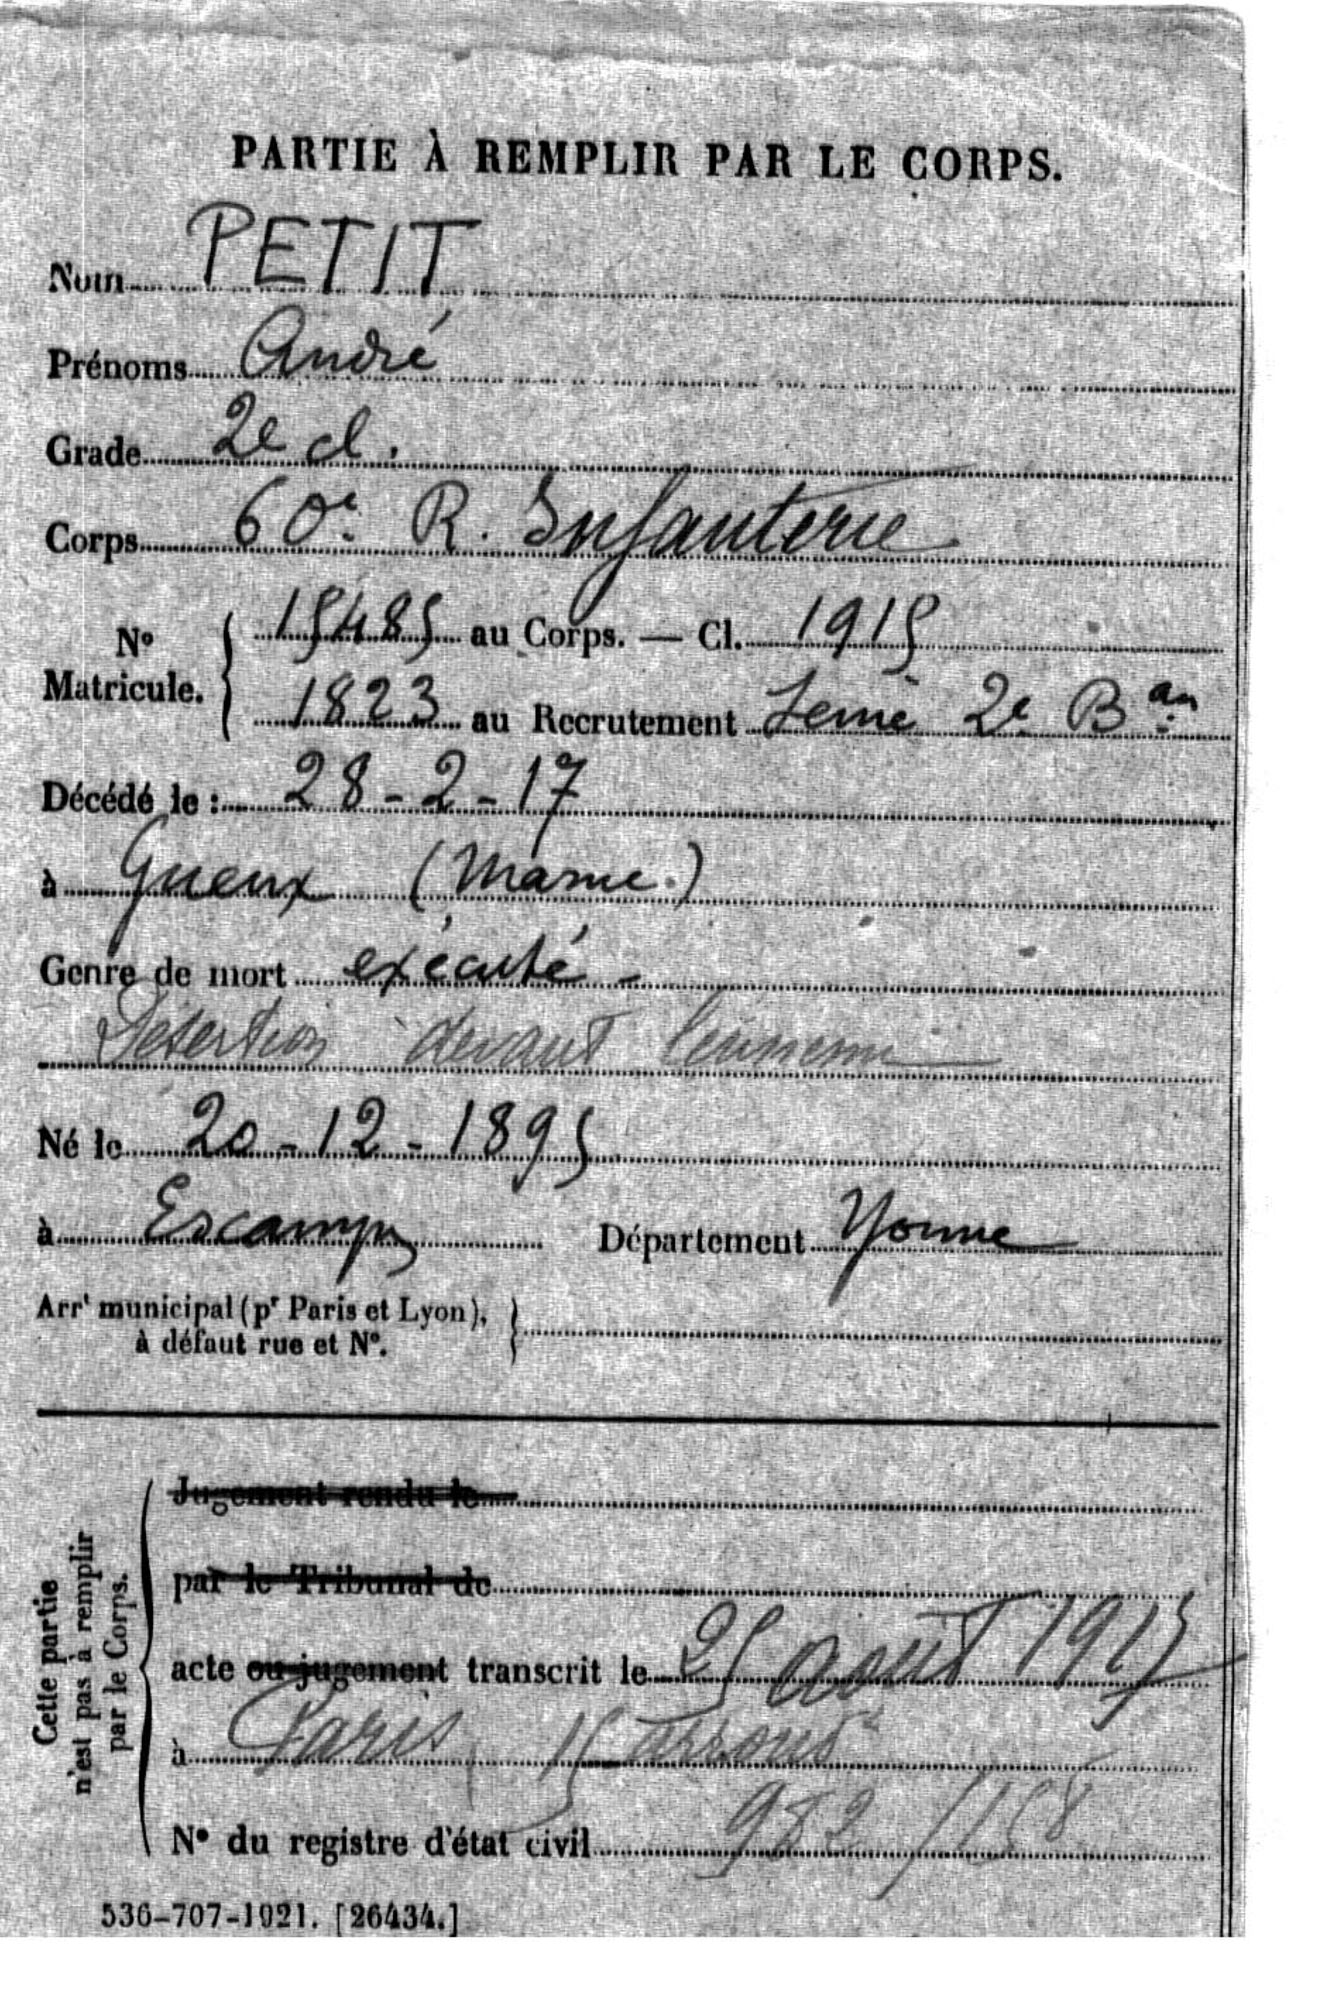 PARTIE À REMPLIR PAR LE CORPS.
Nom PETIT
Prénoms André
Grade 2e cl.
Corps 60e R. Infanterie
No Matricule. { 15485 au Corps. — Cl. 1915
1823 au Recrutement Seine 2e Bau
Décédé le : 28-2-17
à Gueux (Marne.)
Genre de mort exécuté -
Désertion devant l'ennemi
Né le 20-12-1895
à Escamps Département Yonne
Arrt municipal (pr Paris et Lyon), à défaut rue et No. }
Cette partie n'est pas à remplir par le Corps.
Jugement rendu le
par le Tribunal de
acte ou jugement transcrit le 25 août 1917
à Paris 15 arrondt
No du registre d'état civil 982 /158
536-707-1921. [26434.]